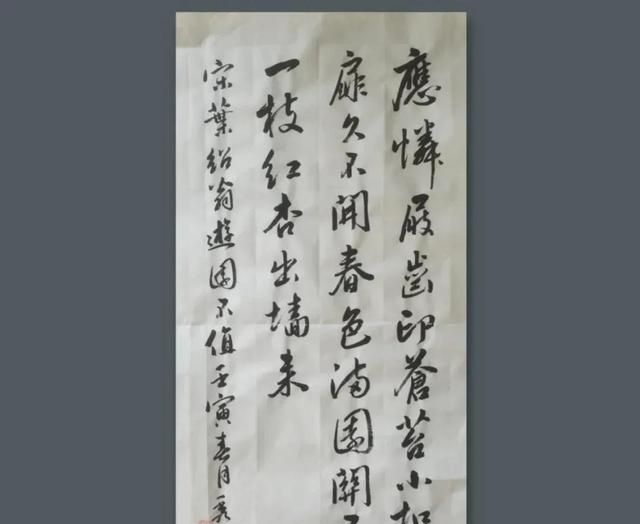 應憐屐齒印蒼苔小
扉久不開春色滿園關
一枝红杏出墙来
宋葉紹翁遊園不值壬寅春月